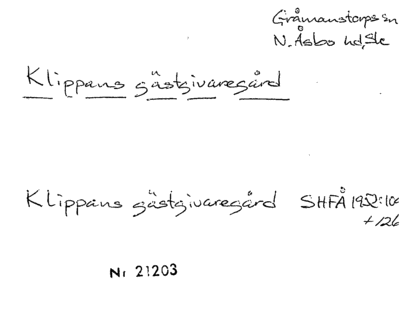 Gråmanstorps sn
N. Åsbo hd, Sk
Klippans gästgivaregård
Klippans gästgivaregård SHFÅ 1952:10
+126
Nr 21203